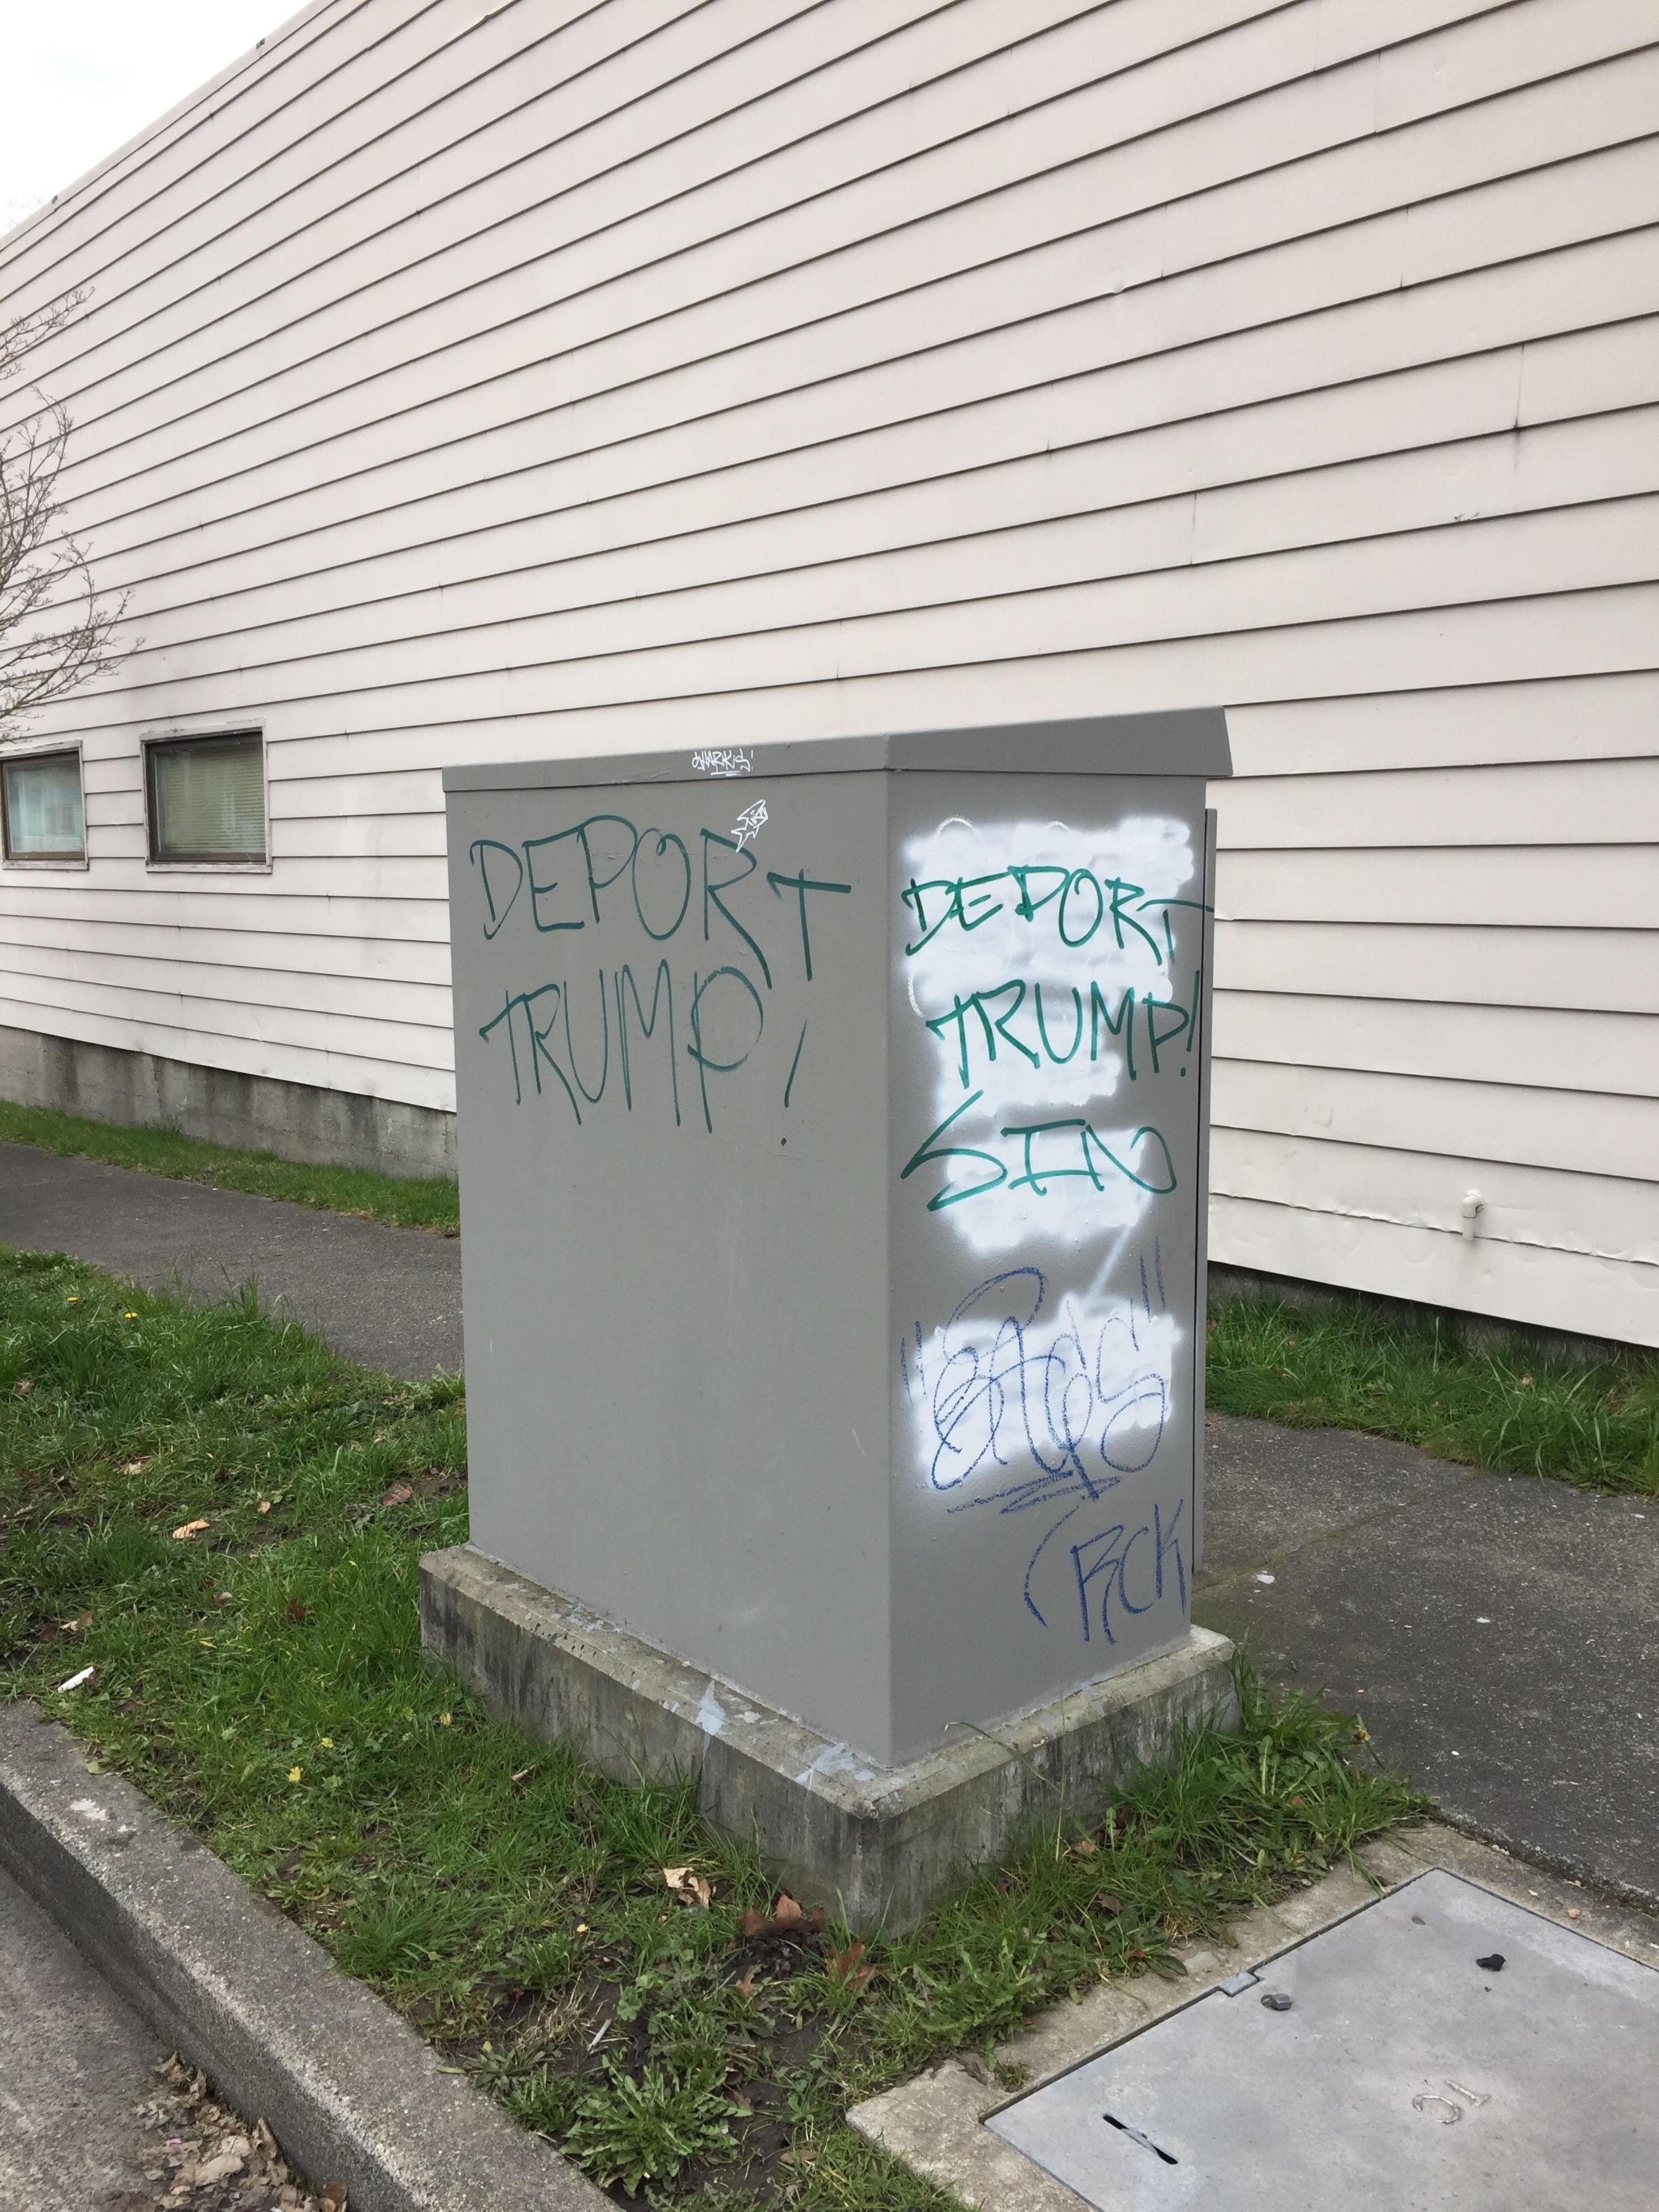 SHARKIS!
DEPORT
TRUMP!
DEPORT
TRUMP!
SIN
RCK